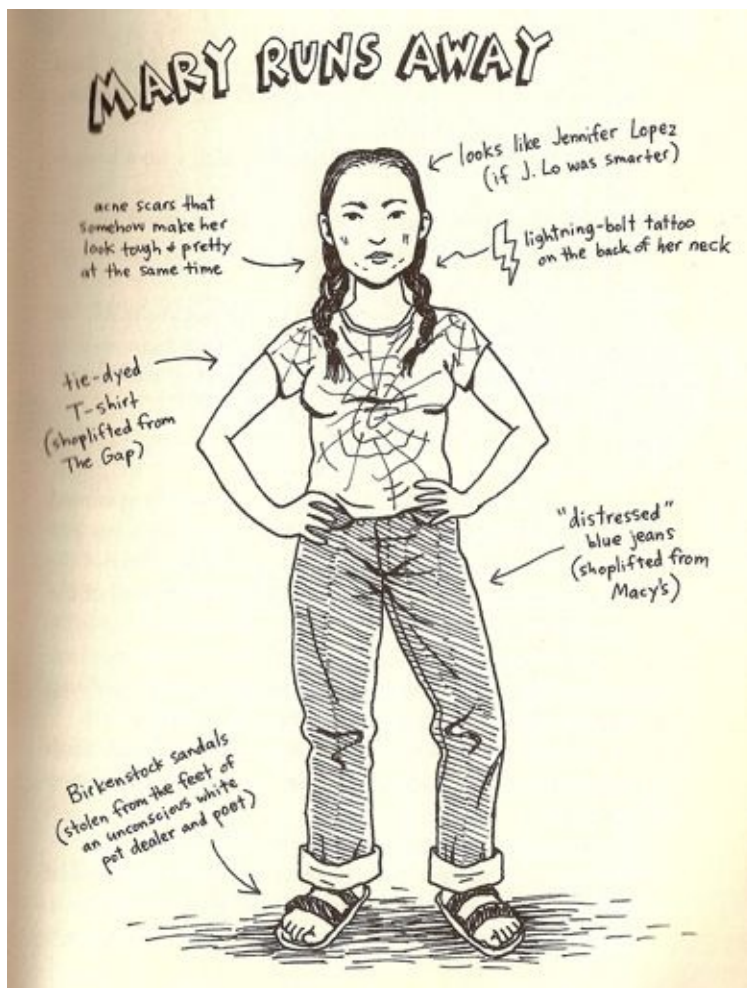 MARY RUNS AWAY
looks like Jennifer Lopez
(if J. Lo was smarter)
acne scars that
somehow make her
look tough & pretty
at the same time
lightning-bolt tattoo
on the back of her neck
tie-dyed
T-shirt
(shoplifted from
The Gap)
"distressed"
blue jeans
(shoplifted from
Macy's)
Birkenstock sandals
(stolen from the feet of
an unconscious white
pot dealer and poet)